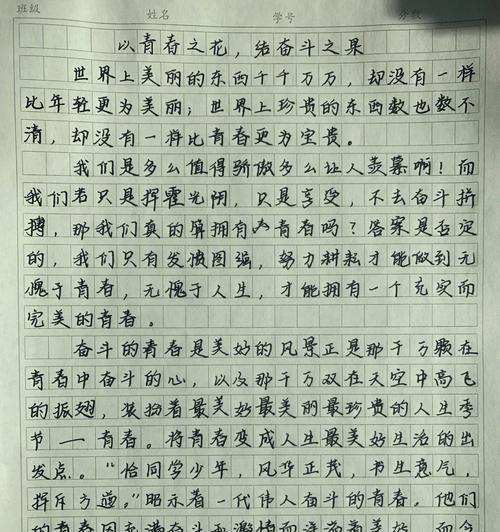 班级 姓名 学号 分数
以青春之花，结奋斗之果
世界上美丽的东西千千万万，却没有一样
比年轻更为美丽；世界上珍贵的东西数也数不
清，却没有一样比青春更为宝贵。
我们是多么值得骄傲多么让人羡慕啊！而
我们若只是挥霍光阴，只是享受，不去奋斗拼
搏，那我们真的算拥有青春吗？答案是否定
的，我们只有发愤图强，努力耕耘才能做到无
愧于青春，无愧于人生，才能拥有一个充实而
完美的青春。
奋斗的青春是美好的风景正是那千万颗在
青春中奋斗的心，以及那千万双在天空中高飞
的振翅，装扮着最美好最美丽最珍贵的人生季
节——青春。将青春变成人生最美好生活的出
发点。“恰同学少年，风华正茂，书生意气，
挥斥方遒。”昭示着一代伟人奋斗的青春。他们
的青春因和满奋斗和激情而洋溢着美好，而今